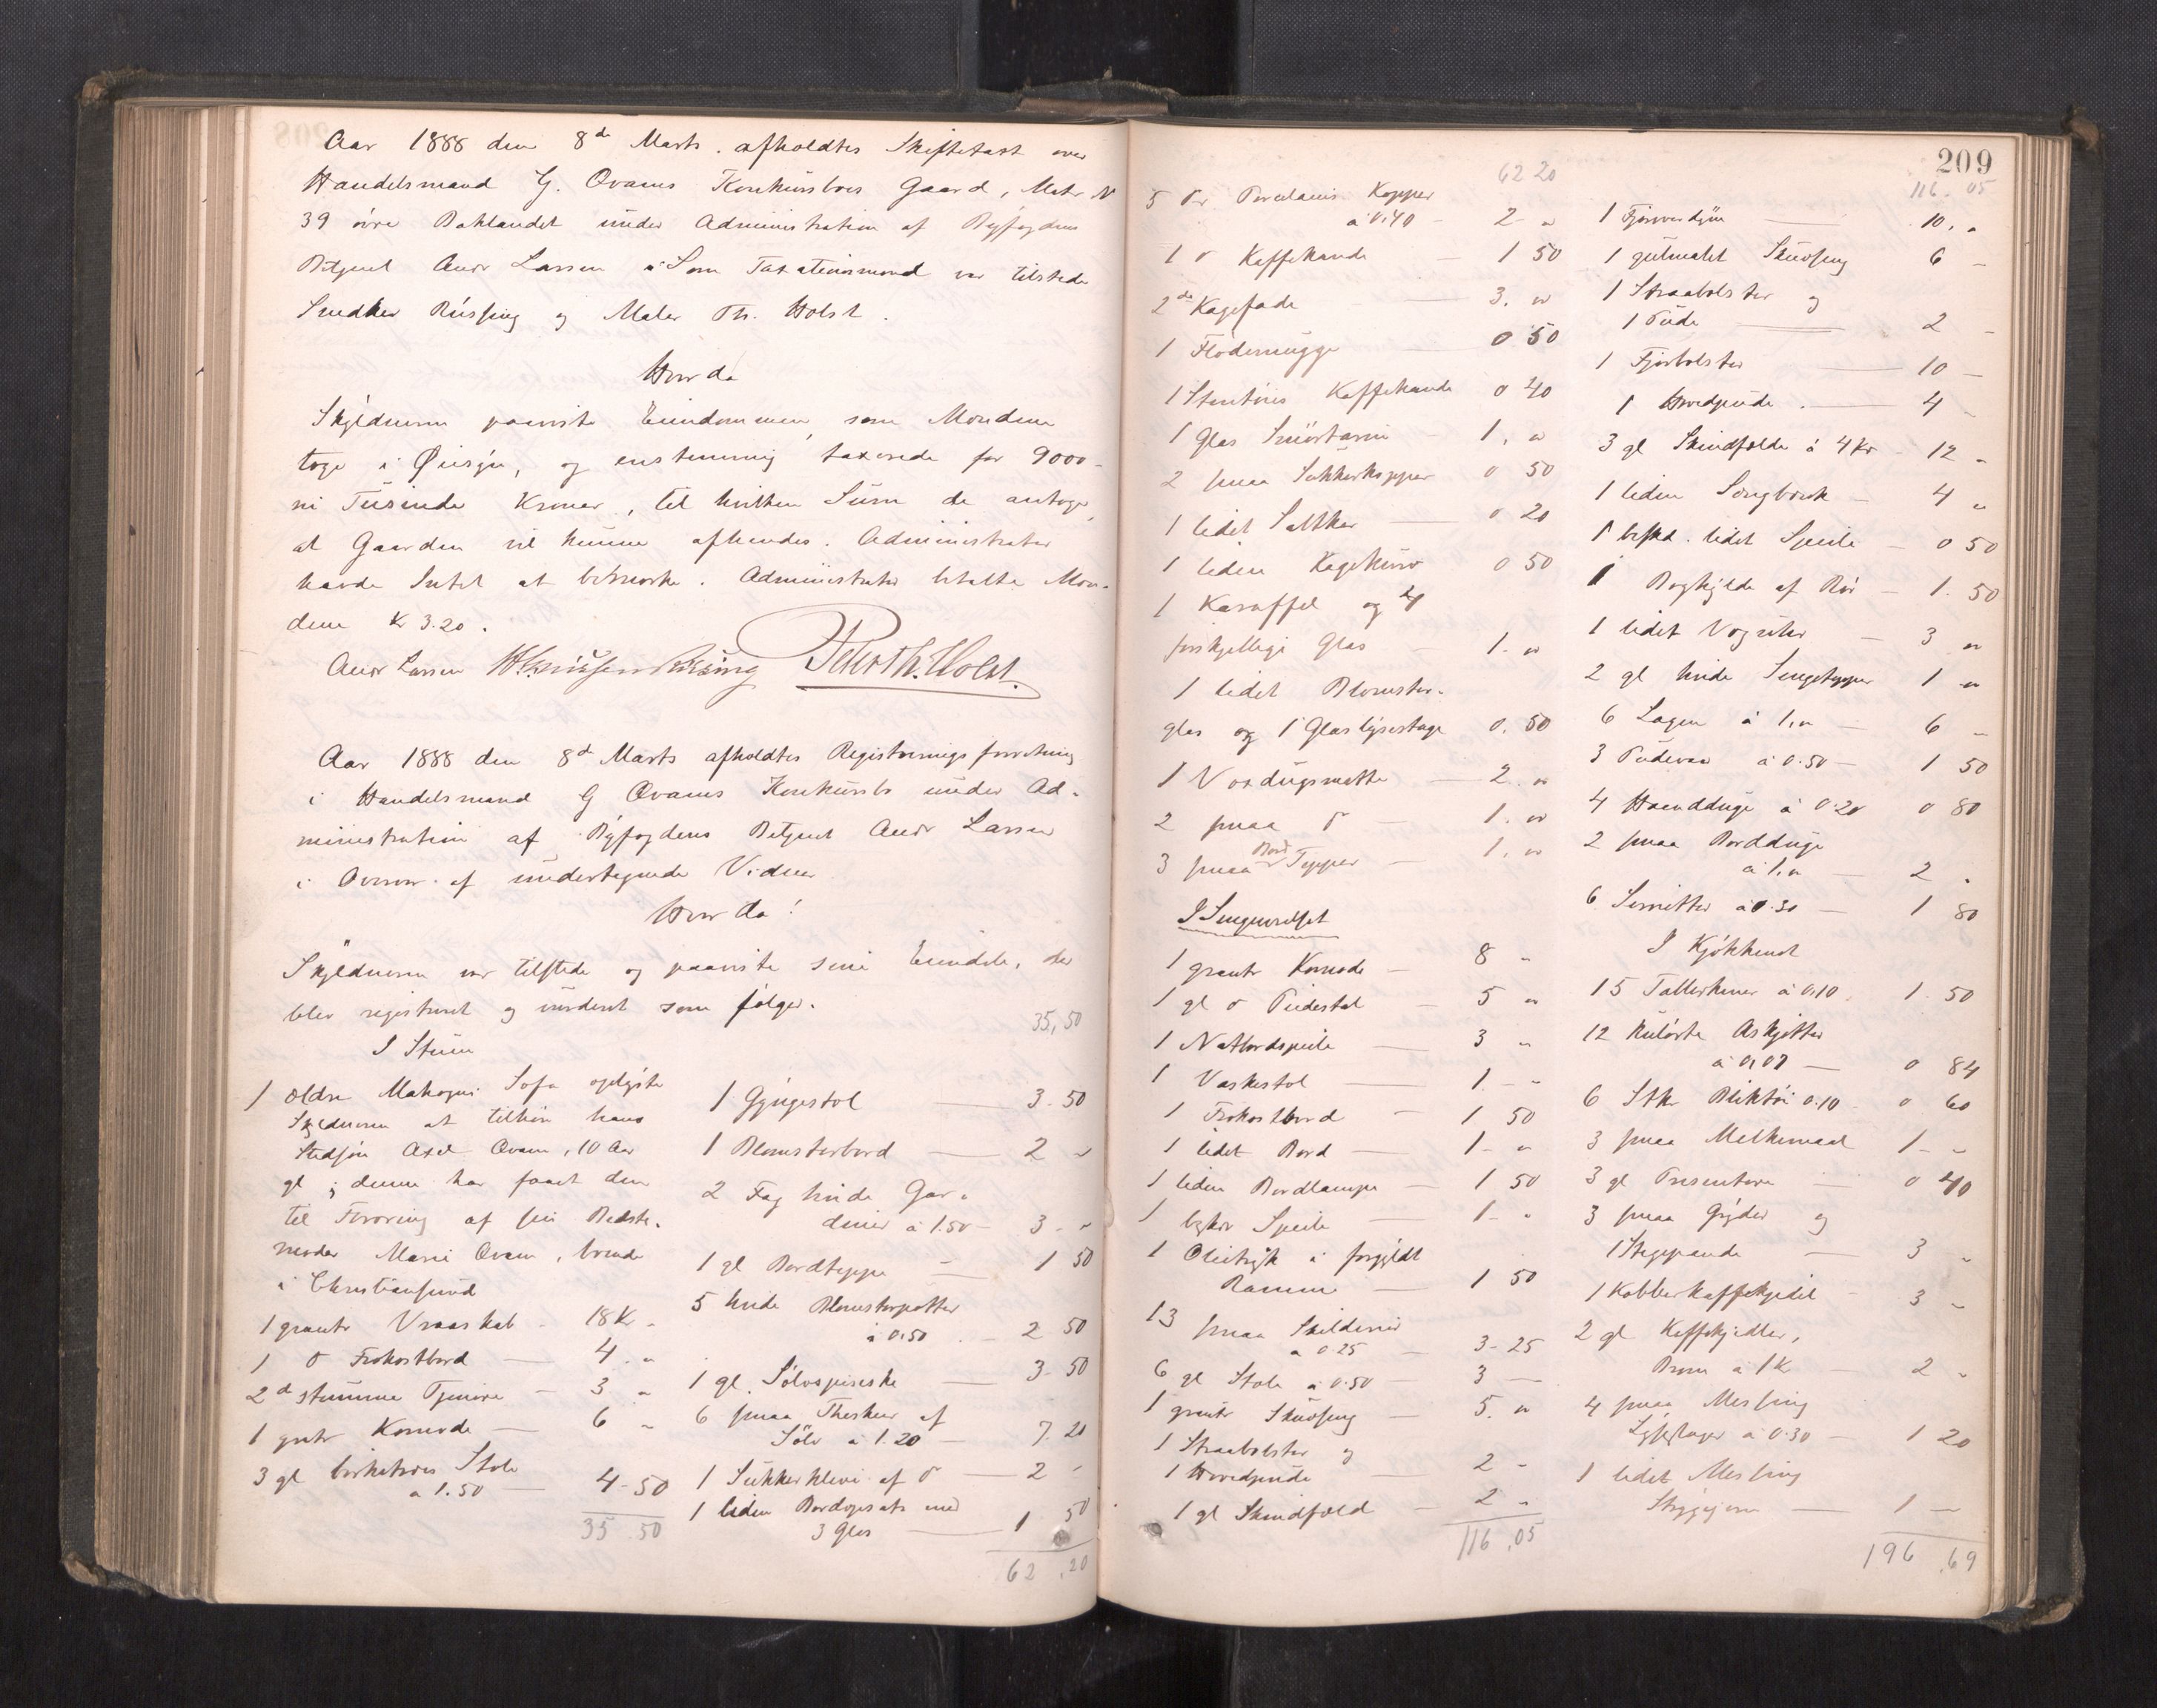 Aar 1888 den 8de Marts. afholdtes Skiftetaxt over
Handelsmand G. Qvams Konkursboes Gaard, Matr N
39 øvre Baklandet under Administration af Byfogdens
Betjent Andr Larsen. Som Taxationsmænd var tilstede
Snedker Rüssing og Maler Th. Holst.
Hvorda
Skyldneren paaviste Eiendommen, som Mændene
toge i Øiesyn, og enstemmig taxerede for 9000-
ni Tusinde Kroner, til hvilken Sum de antoge,
at Gaarden vil kunne afhændes. Administrator
havde Intet at bemærke. Administrator betalte Mæn-
dene Kr 3.20.
Andr Larsen Peter Th. Holst.
Aar 1888 den 8de Marts afholdtes Registreringsforretning
i Handelsmand G Qvams Konkursbo under Ad-
ministration af Byfogdens Betjent Andr Larsen
i Overvær af undertegnede Vidner
Hvor da!
Skyldneren var tilstede og paaviste sine Eiendele, der
blev registreret og vurderet som følger.
I Stuen
1 ældre Mahogni Sofa oplyste
Skyldneren at tilhøre hans
Stedsøn Axel Qvam, 10 Aar
gl; denne har faaet den
til Foræring af sin Bedste-
moder Marie Qvam, boende
i Christiansund
1 grantr Vraaskab - 18 Kr "
1 do Frokostbord - 4. "
2 do stumme Tjenere - 3 "
1 grtr Komode - 6 "
3 gl birketræes Stole
a 1.50 - 4-50
35.50
35,50
1 Gyngestol 3.50
1 Blomsterbord 2 "
2 Fag hvide Gar-
diner à 1.50 - 3 - "
1 gl Bordteppe 1 50
5 hvide Blomsterpotter
à 0.50 - 2 50
1 gl. Sølvspiseske 3-50
6 smaa Theskeer af
Sølv a 1.20 - 7.20
1 Sukkerklive af do 2 -
1 liden Bordopsats med
3 Glas 1 50
62.20
209
62 20
5 Pr Porcelæns Kopper
a 0.40 - 2 - "
1 do Kaffekande - 1 50
2 do Kagefade 3. "
1 Flødemugge 0 50
1 Stentøies Kaffekande 0 40
1 Glas Smørterrin - 1. "
2 smaa Sukkerkopper 0 50
1 lidet Saltkar 0 20
1 liden Kagekurv 0 50
1 Karaffel og 4
forskjellige Glas - 1. "
1 lidet Blomster-
glas og 1 Glaslysestage 0.50
1 Voxdugsmatte - 2. "
2 smaa do - 1. "
3 smaa Bord Tepper - 1. "
I Sengeværelset
1 grantr Komode - 8 "
1 gl do Piedestal - 5 "
1 Natbordspeile 3 "
1 Vaskestol 1. - "
1 Frokostbord - 1 50
1 lidet Bord - 1 - "
1 liden Bordlampe - 1 50
1 Speile 1 - "
1 Olietryk i forgyldt
Ramme - 1 50
13 smaa Skilderier
a 0.25 - 3-25
6 gl Stole a 0.50 - 3 -
1 grantr Skuvseng - 5. "
1 Straabolster og
1 Hovedpude - 2 -
1 gl Skindfæld - 2 "
116.05
116.05
1 Fjærdyne 10. "
1 gulmalet Skuvseng 6 -
1 Straabolster og
1 Pude 2 -
1 Fjærbolster 10 -
1 Hovedpude. 4 -
3 gl Skindfælde à 4 Kr - 12 "
1 liden Sengbænk - 4 "
1 beskd. lidet Speile - 0 50
1 Boghylde af Rør - 1. 50
1 lidet Vaaguhr - 3 "
2 gl hvide Sengetepper 1 "
6 Lagen à 1." - 6 "
3 Pudevar à 0.50 - 1 50
4 Haandduge à 0.20 0 80
2 smaa Bordduge
à 1." - 2 "
6 Servietter à 0.30 - 1 80
I Kjøkkenet
15 Tallerkener à 0.10. 1. 50
12 kulørte Asjetter
à 0.07 - 0 84
6 Stkr Bliktøi 0.10 - 0 60
3 smaa Melkemaal 1 - "
3 gl Presentere - 0 40
3 smaa Gryder og
1 Stegepande - 3 "
1 Kobberkaffekjedel - 3 "
2 gl Kaffekjedler,
à 1 K - 2 "
4 smaa Messing
Lysestager a 0.30 - 1 20
1 lidet Messing
Strygejern 1 -
196.69